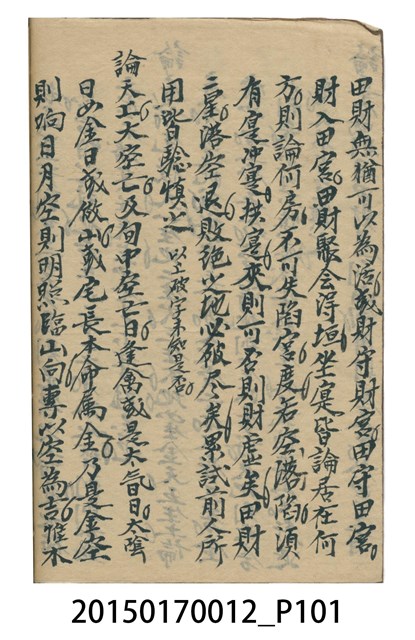 田財無猶可以為活或財守財宮田守田宮
財入田宮田財聚會得垣坐寔皆論居在何
方則論何房不可失陷宮度若空落陷須
有寔冲寔拱寔夾則可否則財虛矣田財
二星落空退敗絕之地必破尽矣累試前人所
用皆驗慎之 以上破字未知是否
論天工大空亡及旬中空亡日逢禽或是大音日太陰
日如金日或做山或宅長本命屬金乃是金空
則响日月空則明照臨山向專以空為吉惟木
20150170012_P101